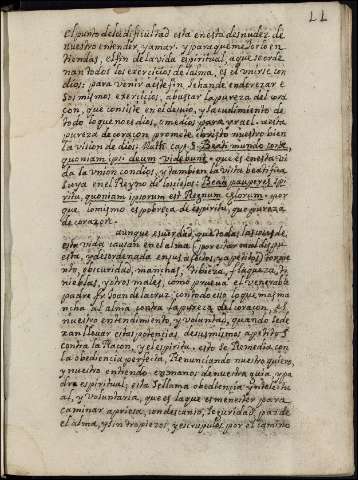 LL
el punto dela dificultad esta enesta desnudez de
nuestro entender, y amar. y para que mejor lo en
tiendas, el fin de la vida espiritual, a que se orde
nan todos los exercicios de la alma, es el unirse con
dios: para venir a este fin, se han de enderezar e
sos mismos exercicios, a buscar la pureza del cora
çon, que consiste en el desvio, y
todo lo que no es dios, o medios para
pureza de coraçon promete christo nuestro bien
la vision de dios: Matt. cap. 5. Beati mundo corde,
quoniam ipsi deum videbunt. que es en esta vi
da la union con dios, y tambien la vista beatifica
suya en el Reyno de los cielos: Beati pauperes spi
ritu, quoniam ipsorum est Regnum Cælorum. por
que lo mismo es pobreza de espiritu, que pureza
de coraçon.
aunque es verdad, que todas las cosas de
esta vida causan en el alma (por estar mal dispu
esta, y desordenada en sus afectos, y apetitos) torme
nto, obscuridad, manchas, tibieza, flaqueza, ti
nieblas, y otros males, como prueba el venerable
padre fr. Joan dela cruz: con todo eso lo que mas ma
ncha al alma contra la pureza del coraçon, es
nuestro entendimiento, y voluntad, quando se de
xan llevar estas potencias de sus mismos apetitos
contra la Raçon, y el espiritu. esto se Remedia con
la obediencia perfecta, Renunciando nuestro querer,
y nuestro entiendo en manos de nuestra guia, y pa
dre espiritual; esta se llama obediencia yntelectu
al, y voluntaria, que es la que es menester para
caminar apriesa, con descanso, seguridad, paz de
el alma, y sin tropiezos, y escrupulos, por el camino